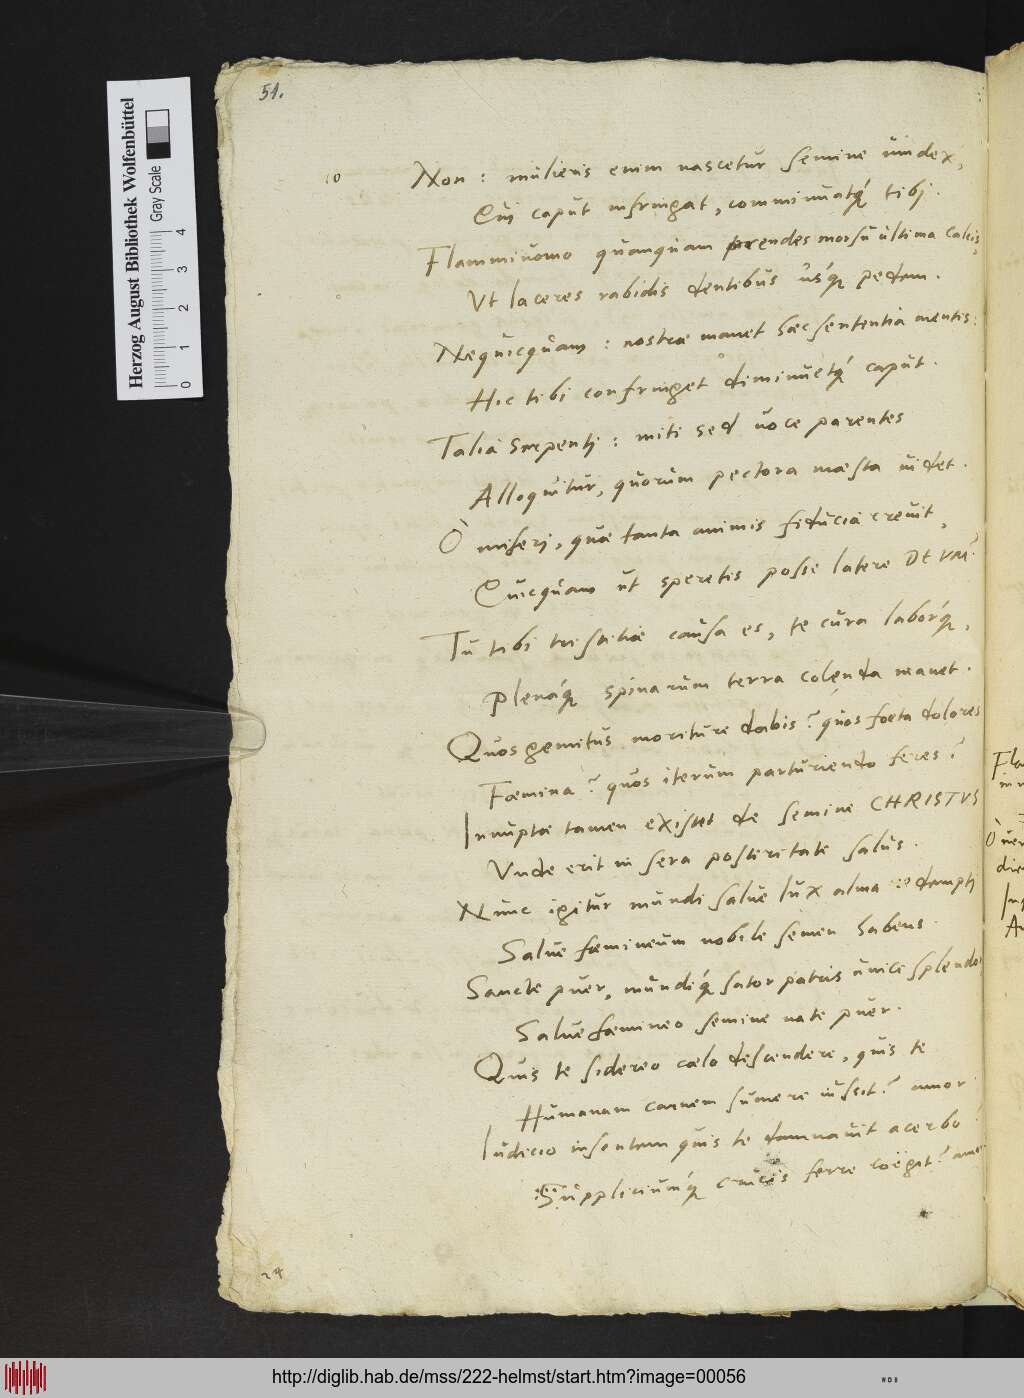 51.
Herzog August Bibliothek Wolfenbüttel
Gray Scale
0 1 2 3 4
10
Non: mulieris enim nascetur semine uindex,
Qui caput infringat, comminuatq́ue tibj.
Flammiuomo quanquam prendes morsu ultima calcis,
Vt laceres rabidis dentibus usq́ue pedem.
Nequicquam: nostrae manet haec sententia mentis:
Hic tibi confringet diminuetq́ue caput.
Talia Serpentj: miti sed uoce parentes
Alloquitur, quorum pectora maesta uidet.
Ò miserj, quae tanta animis fiducia creuit,
Quicquam ut speretis posse latere DEVM?
Tu tibi tristitiae causa es, te cura laborq́ue,
Plenaq́ue spinarum terra colenda manet.
Quos gemitus moriture dabis? quos foeta dolores
Fœmina? quos iterum parturiendo feres?
Innuptae tamen existet de semine CHRISTVS
Vnde erit in sera posteritate salus.
Nunc igitur mundi salue lux alma redemptj
Salue fœmineum nobile semen habens.
Sancte puer, mundiq́ue sator patris unice splendor
Salue fœmineo semine nate puer.
Quis te sidereo cœlo descendere, quis te
Humanam carnem sumere iussit? amor
Iudicio insontem quis te damnauit acerbo
Suppliciumq́ue crucis ferre coëgit? amor
24
http://diglib.hab.de/mss/222-helmst/start.htm?image=00056